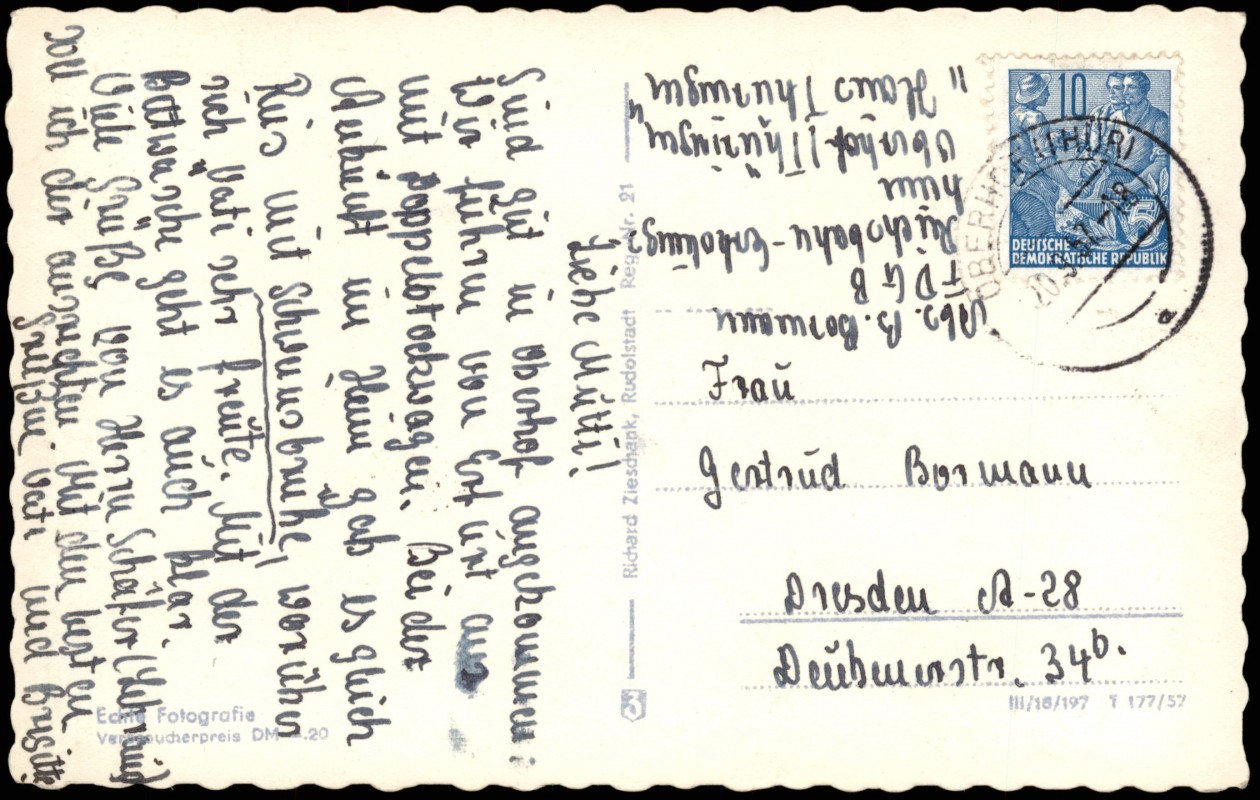 Liebe Mutti!
Sind gut in Oberhof angekommen.
Wir fuhren von Erfurt aus
mit Doppelstockwagen. Bei der
Ankunft im Heim gab es gleich
Reis mit Schwensbrühe, worüber
sich Vati sehr freute. Mit der
Bettwäsche geht es auch klar.
Viele Grüße von Herrn Schäfer
soll ich dir ausrichten. Mit den besten
Grüßen Vati und Brigitte
Abs. B. Bormann
FDGB
Reichsbahn-Erholungs
heim
Oberhof/Thüringen
"Haus Thüringen"
10
DEUTSCHE
DEMOKRATISCHE REPUBLIK
OBERHOF (THÜR)
Frau
Gertrud Bormann
Dresden A-28
Deubenerstr. 34b.
Richard Zieschank, Rudolstadt Reg.-Nr. 21
Echte Fotografie
Verbraucherpreis DM -.20
III/18/197 T 177/57